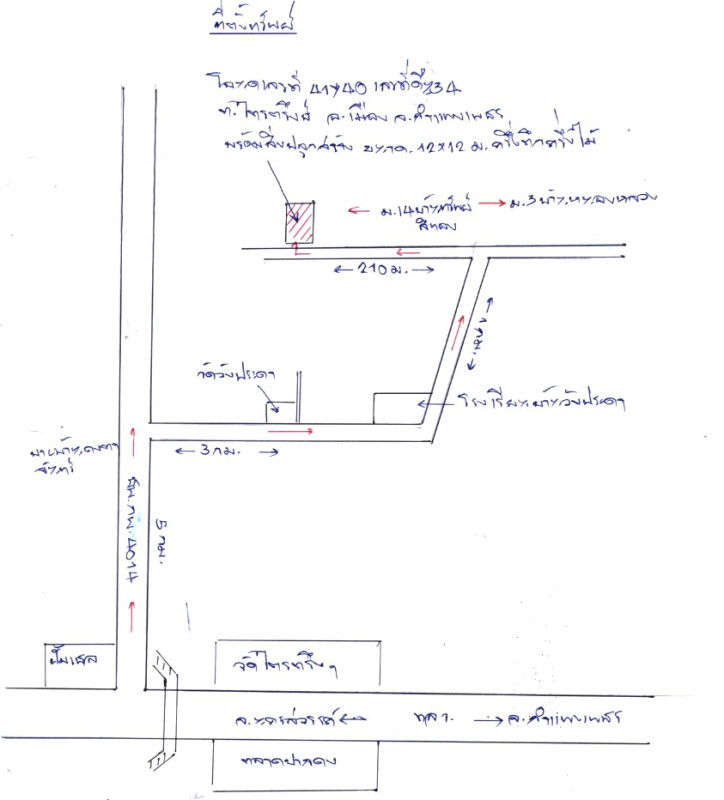 ที่ตั้งทรัพย์
โฉนดเลขที่ 41740 เลขที่ดิน 34
ต.ไตรตรึงษ์ อ.เมือง จ.กำแพงเพชร
พร้อมสิ่งปลูกสร้าง ขนาด 12x12 ม. ครึ่งตึกครึ่งไม้
ม.14 บ้านทรัพย์
สีทอง
ม.3 บ้านหนองหลวง
210 ม.
1 กม.
วัดวังประดา
โรงเรียนบ้านวังประดา
3 กม.
5 กม.
4014
วัดไตรตรึงฯ
จ.นครสวรรค์
ทล 1.
จ.กำแพงเพชร
ตลาดปากดง